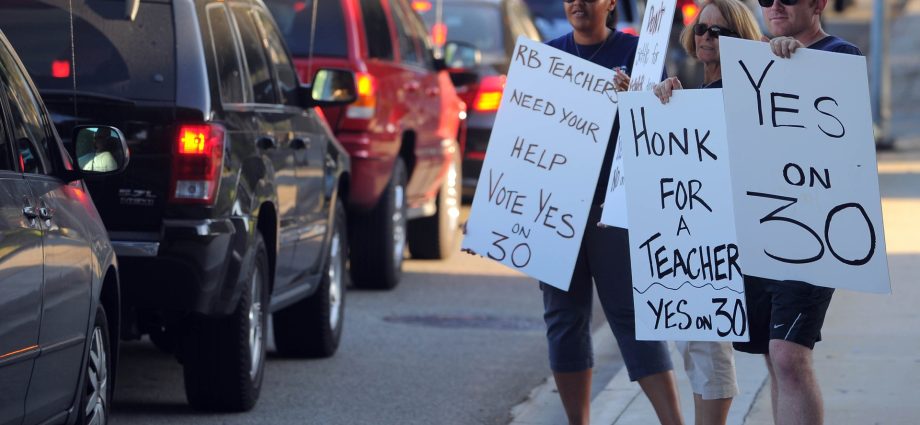 RB TEACHERS
NEED YOUR
HELP
VOTE YES
ON
30
HONK
FOR
A
TEACHER
YES ON 30
YES
ON
30